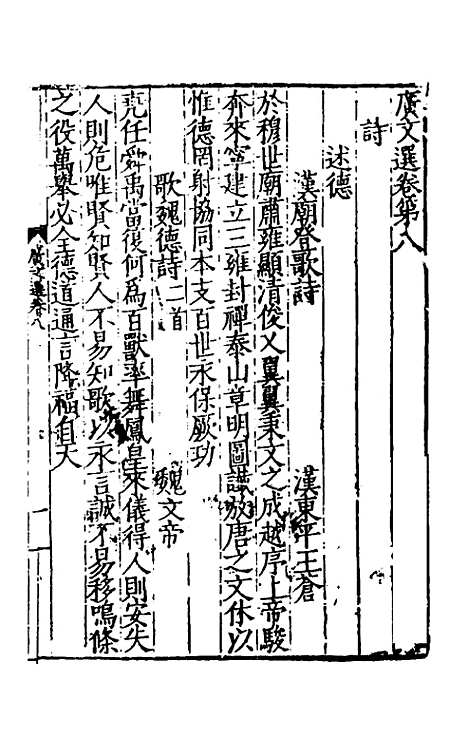 廣文選卷第八
詩
述德
漢廟登歌詩 漢東平王倉
於穆世廟肅雍顯清俊乂翼翼秉文之成越序上帝駿
奔來寧建立三雍封禪泰山章明圖讖放唐之文休以
惟德罔射協同本支百世永保厥功
歌魏德詩二首 魏文帝
堯任舜禹當復何爲百獸率舞鳳皇來儀得人則安失
人則危唯賢知賢人不易知歌以永言誠不易移鳴條
之役萬舉必全德道通言降福自天
廣文選卷八 一